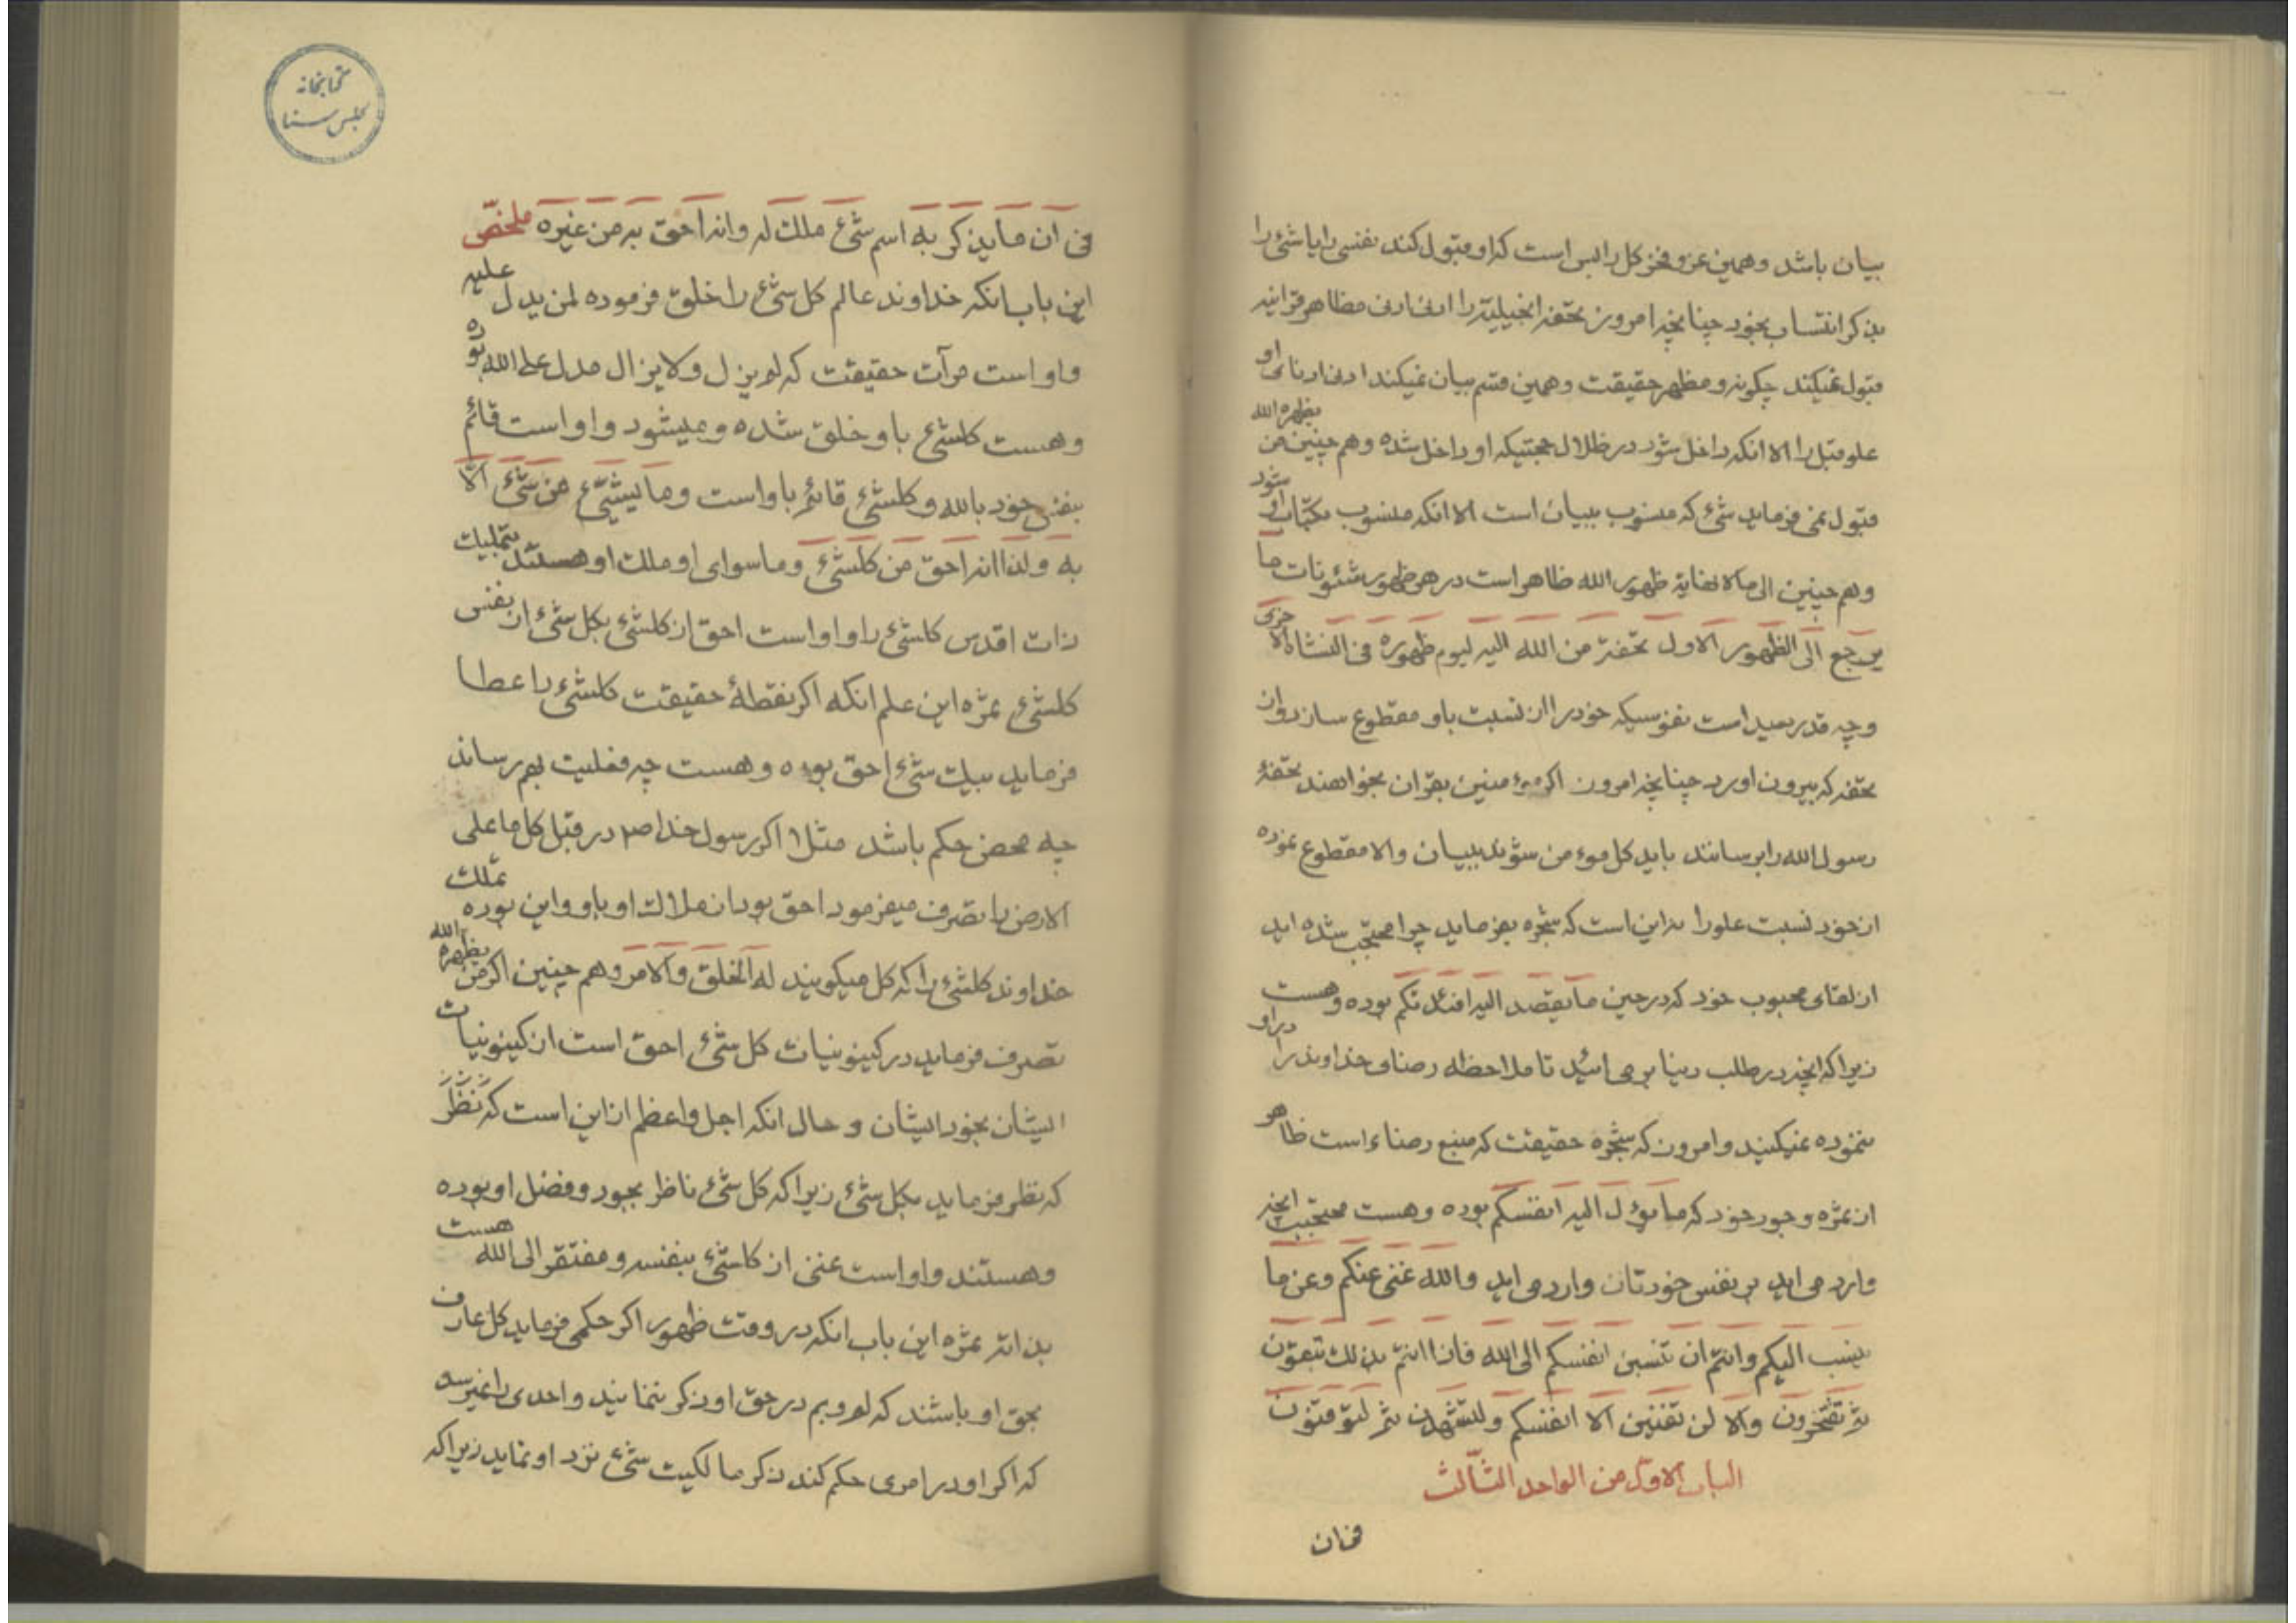 بیان باشد وهمین عز و فخر کل را بس است که او قبول کند نفسی را یا شئ را
بذکر انتساب بخود چنانچه امروز تحفه انجیلیه را ادنی ادنی مظاهر قرانیه
قبول نمیکند چگونه و مظهر حقیقت وهمین قسم بیان نمیکند ادنی ادنای او
علو قبل را الا انکه داخل شود در ظلال حجتیکه او داخل شده وهم چنین من یظهره الله
قبول نمی فرماید شئ که منسوب ببیان است الا انکه منسوب بکتاب او شود
وهم چنین الی ما لا نهایة ظهور الله ظاهر است در هر ظهور شئونات ما
یرجع الی الظهور الاول تحفة من الله الیه لیوم ظهوره فی النشاة الاخری
وچه قدر بعید است نفوسیکه خود را از نسبت باو مقطوع سازد وان
تحفه که بیرون اورد چنانچه امروز اگر مؤمنین بقران بخواهند تحفهٔ
رسول الله را برسانند باید کل مؤمن شوند ببیان والا مقطوع نموده
از خود نسبت علو را این است که شجره میفرماید چرا محتجب شده اید
از لقای محبوب خود که در حین ما یقصد الیه افئدتکم بوده وهست
زیرا که انچه در طلب دنیا بر می ائید تا ملاحظه رضای خداوند را در او
ننموده نمیکنید وامروز که شجره حقیقت که منبع رضاء است ظاهر
از ثمره وجود خود که ما یؤل الیه انفسکم بوده وهست محتجبید انچه
وارد می اید بر نفس خودتان وارد می اید والله غنی عنکم وعن ما
ینسب الیکم وانتم ان تنسبن انفسکم الی الله فاذا انتم بذلک تتعززون
ثم تفتخرون والا لن تفنین الا انفسکم ولتشهدن ثم لتوقنون
الباب الاول من الواحد الثالث
فی ان
کتابخانه
مجلس سنا
فی ان ما یذکر به اسم شئ ملک له وانه احق به من غیره ملخص
این باب انکه خداوند عالم کل شئ را خلق فرموده لمن یدل علیه
واو است مرآت حقیقت که لم یزل ولا یزال مدل علی الله بوده
وهست کلشئ باو خلق شده ومیشود واو است قائم
بنفس خود بالله وکلشئ قائم باو است وما یشیئ من شئ الا
به ولذا انه احق من کلشئ وما سوای او ملک او هستند بتجلیات
ذات اقدس کلشئ را واو است احق از کلشئ بکل شئ از نفس
کلشئ ثمره این علم انکه اگر نقطهٔ حقیقت کلشئ را عطا
فرماید بیک شئ احق بوده وهست چه فعلیت بهم رساند
چه محض حکم باشد مثلا اگر رسول خدا ص در قبل کل ما علی
الارض را تصرف میفرمود احق بود از ملاک او باو واین بوده تملیک
خداوند کلشئ را که کل میگویند له الخلق والامر وهم چنین اگر من یظهره الله
تصرف فرماید در کینونیات کل شئ احق است از کینونیات
ایشان بخود ایشان و حال انکه اجل واعظم از این است که نظر
که نظر فرماید بکل شئ زیرا که کل شئ ناظر بجود وفضل او بوده
وهستند واو است غنی از کلشئ بنفسه ومفتقر الی الله هست
بذاته ثمره این باب انکه در وقت ظهور اگر حکمی فرماید کل عارف
بحق او باشند که لم وبم در حق او ذکر ننمایند واحدی را نمیرسد
که اگر او در امری حکم کند ذکر مالکیت شئ نزد او نماید زیرا که